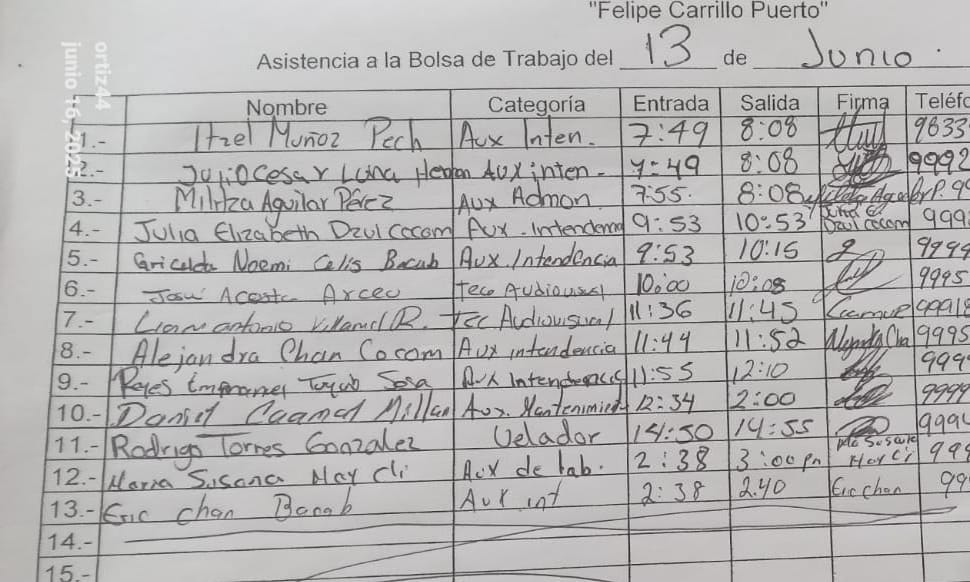 "Felipe Carrillo Puerto"
Asistencia a la Bolsa de Trabajo del 13 de Junio
ortiz44
junio 16, 2025
Nombre Categoría Entrada Salida Firma Teléfo
1.- Itzel Muñoz Pech Aux Inten. 7:49 8:08 9833
2.- Julio Cesar Luna Aux inten- 7:49 8:08 9992
3.- Aguilar Pérez Aux Admon. 7:55. 8:08
4.- Julia Elizabeth Dzul Cocom Aux. Intendencia 9:53 10:53 Julia E. Dzul Cocom 999
5.- Gricelda Noemi Celis Bacab Aux. Intendencia 9:53 10:15 9999
6.- Acosta Arceo Teco Audiovisual 10:00 10:08 9995
7.- antonio Villamil R. Tec Audiovisual 11:36 11:45 9991
8.- Alejandra Chan Cocom Aux intendencia 11:44 11:52 Alejandra Cha 9995
9.- Reyes Sosa Aux Intendencia 11:55 12:10 999
10.- Daniel Caamal Millan Aux. Mantenimiento 12:34 2:00 9999
11.- Rodrigo Torres Gonzalez Velador 14:50 14:55 999
12.- Maria Susana May Cli Aux de lab. 2:38 3:00 pm 999
13.- Eric chan Bacab Aux int 2:38 2.40 Eric chan 99
14.-
15.-